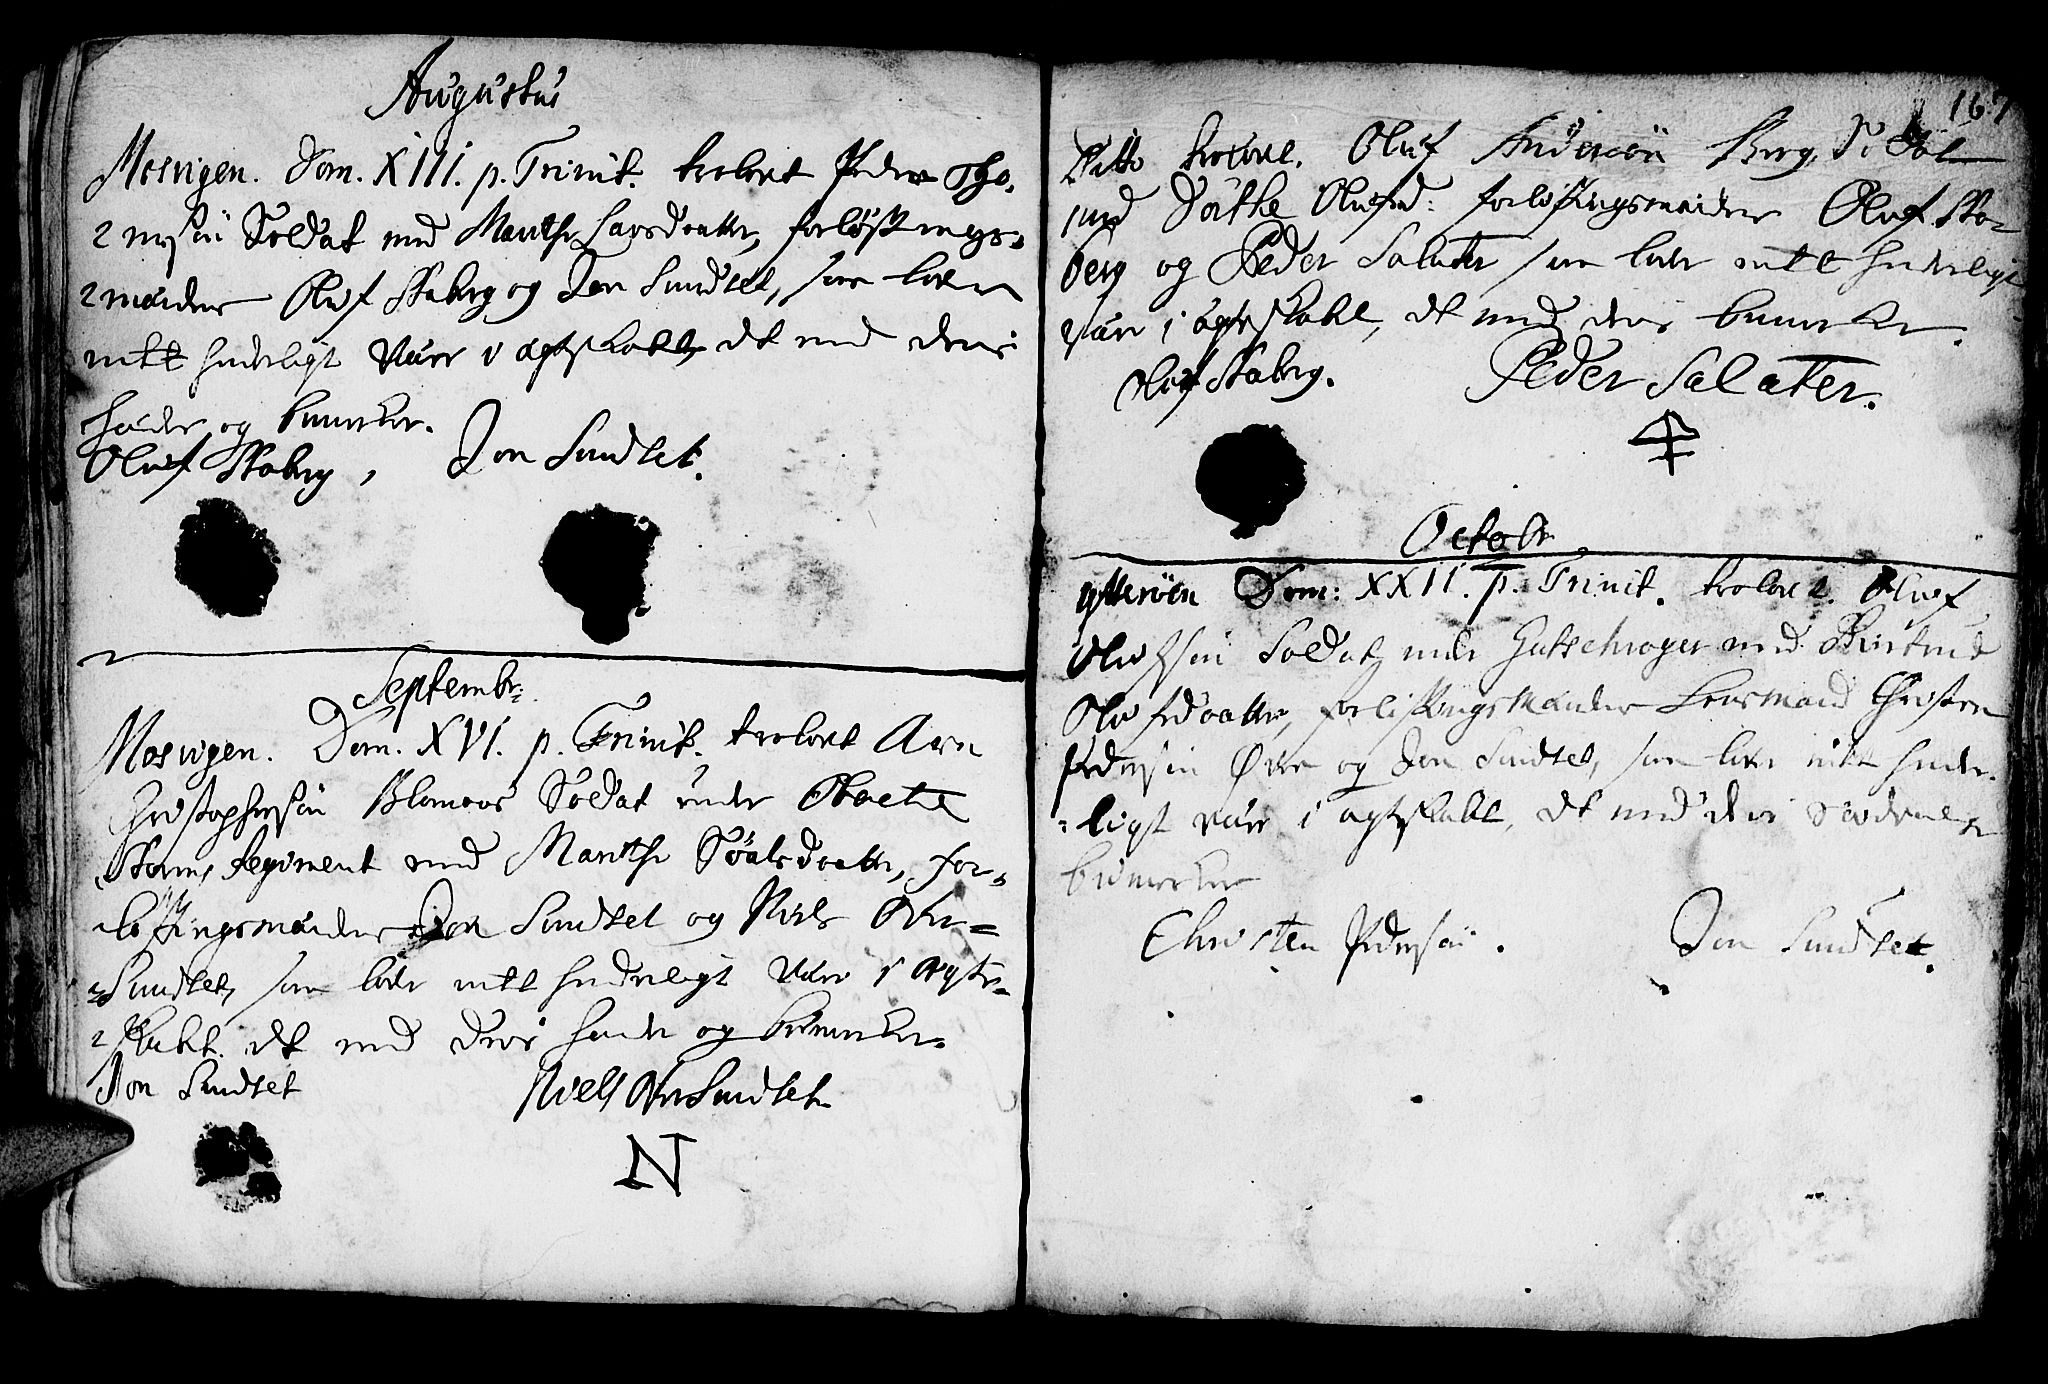 Augustus
Mosvigen. Dom. XIII. p. Trinit. trolovet Peder Tho-
mesøn Soldat med Marithe Larsdaatter, forløfknings-
mænder Oluf Skaberg og Jon Sundset, som lover
intet hinderligt være i ægteskabet, det med deris
hænder og bumerker.
Oluf Skaberg, Jon Sundset.
Septembr:
Mosvigen. Dom. XVI. p. Trinit. trolovet Arn
Christophersøn Soldat under Oberste
Regiment med Marithe Siulsdaatter, for-
løfkningsmænder Jon Sundset og Niels Over-
Sundset, som lover intet hinderligt være i Ægte-
skabet. det med deris hænder og bumerker.
Jon Sundset Niels OverSundset.
N
167
Ditto trolovet. Oluf Andersøn Berg, Soldat
med Dorthe Olufsd: forløfkningsmænder Oluf Ska-
berg og Peder Salater som lover intet hinderligt
være i ægteskabet, det med deris bumerker.
Oluf Skaberg. Peder Salater.
Octobr.
Ytterøen Dom: XXII. p. Trinit. trolovet. Oluf
Olufsøn Soldat under med
Olufsdaatter, forløfkningsmænder Lensmand Christen
Pedersøn Øvre og Jon Sundset, som lover intet hinder-
ligt være i ægteskabet, det med deris
bumerker
Christen Pedersøn. Jon Sundset.